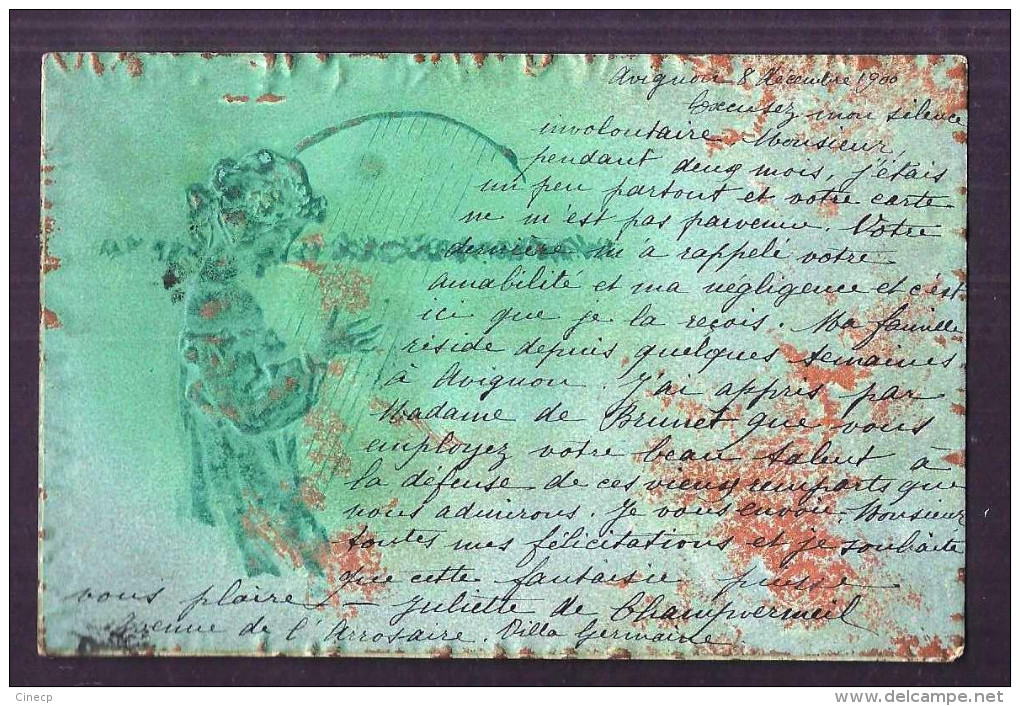 Avignon 8 décembre 1900
Excusez mon silence
involontaire Monsieur,
pendant deux mois, j'étais
un peu partout et votre carte
ne m'est pas parvenue. Votre
dernière m'a rappelé votre
amabilité et ma négligence et c'est
ici que je la reçois. Ma famille
réside depuis quelques semaines
à Avignon. J'ai appris par
Madame de Brunet que vous
employez votre beau talent à
la défense de ces vieux remparts que
nous admirons. Je vous envoie, Monsieur
toutes mes félicitations et je souhaite
que cette fantaisie puisse
vous plaire – Juliette de Champvermeil
Avenue de l'Arrosaire. Villa Germaine
Cinecp
www.delcampe.net